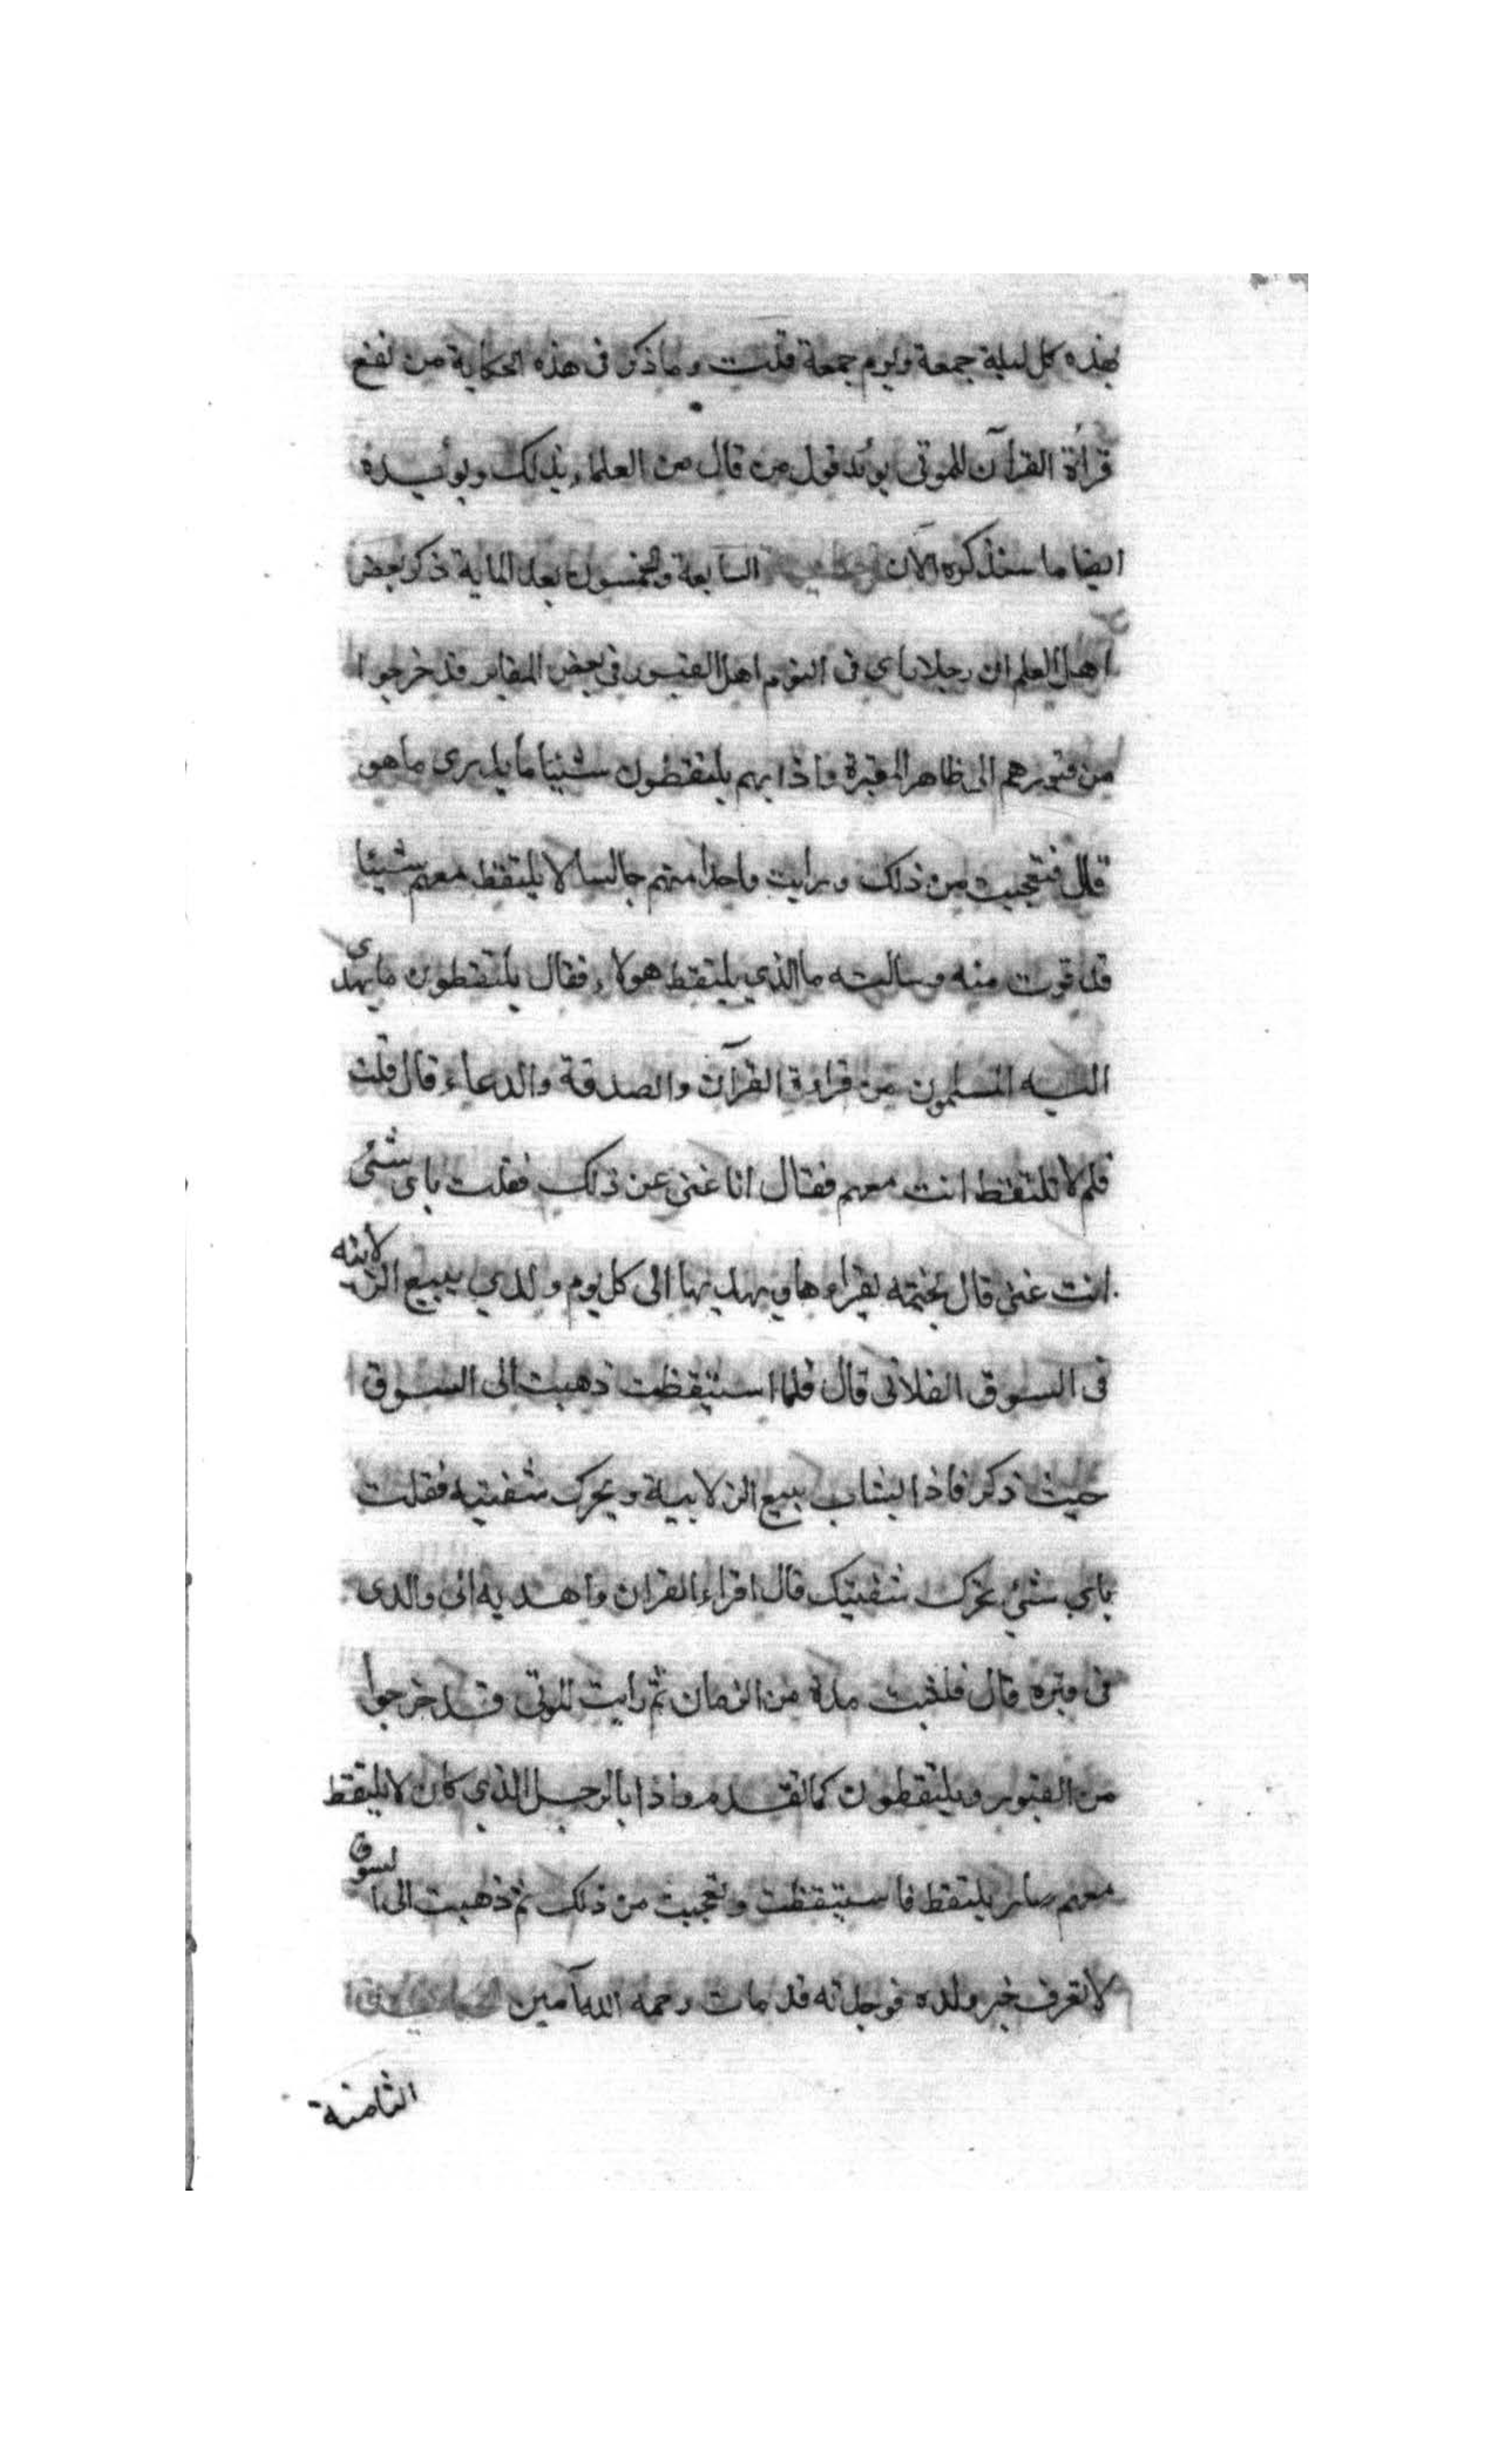 بهذه كل ليلة جمعة ويوم جمعة قلت وما ذكر فى هذه الحكاية من نفع
قرأة القرآن للموتى يوئد قول من قال من العلماء بذلك ويوئيده
ايضا ما سنذكره الآن السابعة والخمسون بعد الماية ذكر بعض
اهل العلم ان رجلا راى فى النوم اهل القبور فى بعض المقابر قد خرجوا
من قبورهم الى ظاهر المقبرة واذا بهم يلتقطون شئيا ما يدرى ما هو
قال فتعجبت من ذلك ورايت واحدا منهم جالسا لا يلتقط معهم شيئا
قد قوت منه وسالته ما الذي يلتقط هولاء فقال يلتقطون ما يهدى
اليه المسلمون من قراءة القرآن والصدقة والدعاء قال قلت
فلم لا تلتقط انت معهم فقال انا غنى عن ذلك فقلت باى شئى
انت غنى قال بختمه يقراءها ويهديها الى كل يوم ولدي يبيع الزلابيه
فى السوق الفلانى قال فلما استيقظت ذهبت الى السوق
حيث ذكر فاذا بشاب يبيع الزلابية ويحرك شفتيه فقلت
باي شئي تحرك شفتيك قال اقراء القران واهديه الى والدى
فى قبره قال فلبثت مدة من الزمان ثم رايت الموتى قد خرجوا
من القبور ويلتقطون كما تقدم واذا بالرجل الذي كان لا يلتقط
معهم صار يلتقط فاستيقظت وتعجبت من ذلك ثم ذهبت الى السوق
لا تعرف خبر ولده فوجدته قد مات رحمه الله آمين
الثامنة